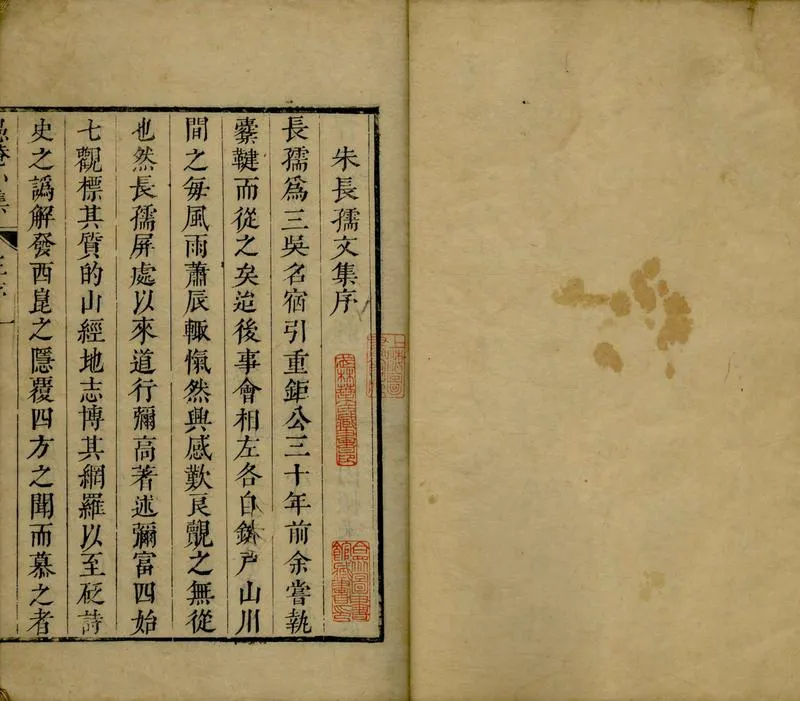 朱長孺文集序
長孺爲三吳名宿引重鉅公三十年前余嘗執
櫜鞬而從之矣迨後事會相左各自鍵戶山川
間之每風雨蕭辰輒愾然興感歎良覿之無從
也然長孺屏處以來道行彌高著述彌富四始
七觀標其質的山經地志博其網羅以至砭詩
史之譌解發西崑之隱覆四方之聞而慕之者